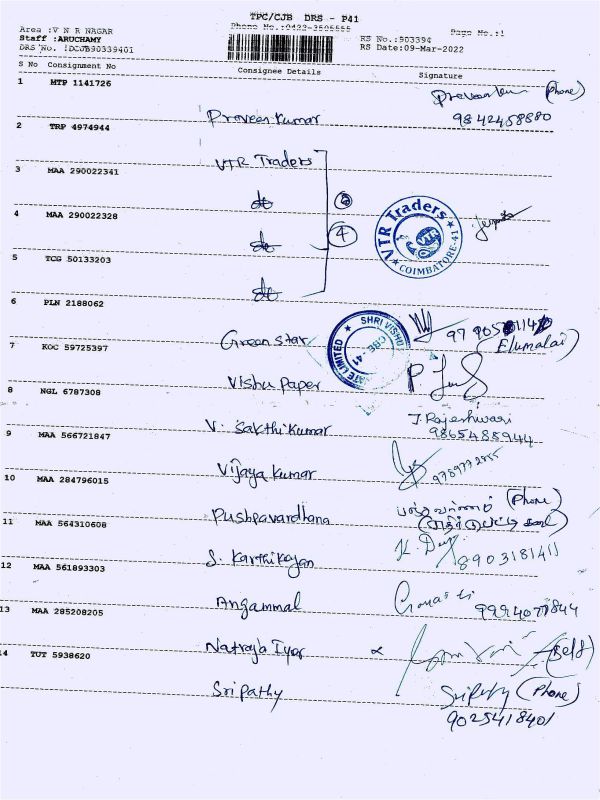 TPC/CJB DRS - P41
Area :V N R NAGAR
Page No.:1
Staff :ARUCHAMY
RS No.:903394
DRS No. :DCJB90339401
RS Date:09-Mar-2022
S No Consignment No Consignee Details Signature
1 MTP 1141726
Praveen Kumar (Phone)
9842458880
2 TRP 4974944
VTR Traders
3 MAA 290022341
do
4 MAA 290022328
do 4
VTR Traders
COIMBATORE-41
5 TCG 50133203
do
6 PLN 2188062
Green Star
(Elumalai)
SHRI VISHU
CBE - 41
7 KOC 59725397
Vishu Paper
8 NGL 6787308
V. Sakthikumar T. Rajeshwari
9865485944
9 MAA 566721847
Vijaya Kumar
10 MAA 284796015
Pushpavardhana (Phone)
11 MAA 564310608
S. Karthikeyan 8903181411
12 MAA 561893303
Angammal 9994077844
13 MAA 285208205
Natraja Iyer (Self)
14 TUT 5938620
Sripathy Sripathy (Phone)
9025418401